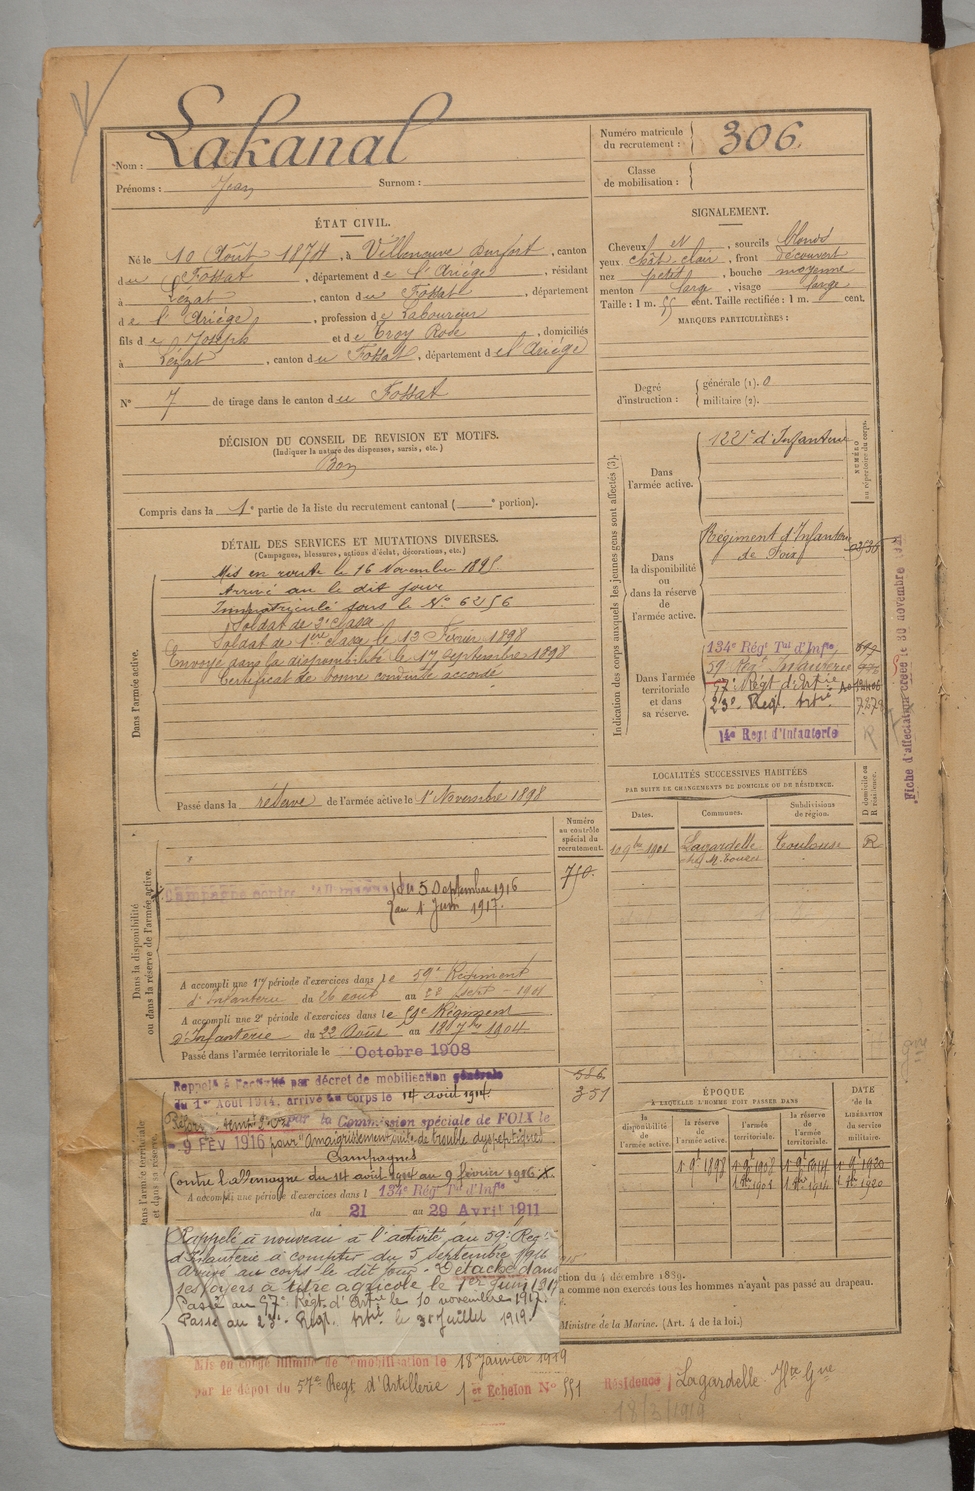 Lakanal
Nom :
Prénoms : Jean Surnom :
Numéro matricule du recrutement : 306.
Classe de mobilisation :
ÉTAT CIVIL.
Né le 10 Août 1874, à Villeneuve Durfort, canton
du Fossat, département de l'Ariége, résidant
à Lézat, canton du Fossat, département
de l'Ariége, profession de Laboureur
fils de Joseph et de Croy Rose, domiciliés
à Lézat, canton du Fossat, département de l'Ariége
N° 7 de tirage dans le canton du Fossat
DÉCISION DU CONSEIL DE REVISION ET MOTIFS.
(Indiquer la nature des dispenses, sursis, etc.)
Bon
Compris dans la 1e partie de la liste du recrutement cantonal ( e portion).
DÉTAIL DES SERVICES ET MUTATIONS DIVERSES.
(Campagnes, blessures, actions d'éclat, décorations, etc.)
Dans l'armée active.
Mis en route le 16 Novembre 1895.
Arrivé au le dit jour
Immatriculé sous le N° 6256
Soldat de 2e classe
Soldat de 1ère classe le 13 Février 1898
Envoyé dans la disponibilité le 17 Septembre 1898
Certificat de bonne conduite accordé
Passé dans la réserve de l'armée active le 1er Novembre 1898
SIGNALEMENT.
Cheveux, sourcils blonds
yeux chât. clair, front découvert
nez petit, bouche moyenne
menton large, visage large
Taille : 1 m. 55 cent. Taille rectifiée : 1 m. cent.
MARQUES PARTICULIÈRES :
Degré d'instruction : générale (1). 0
militaire (2).
Indication des corps auxquels les jeunes gens sont affectés (3).
NUMÉRO au répertoire du corps.
Dans l'armée active.
122e d'Infanterie
Dans la disponibilité ou dans la réserve de l'armée active.
Régiment d'Infanterie
de Foix
Dans l'armée territoriale et dans sa réserve.
134e Régt Tal d'Infie
59 Régt Infanterie
57e Régt d'Artie
23e Régt Artie 7279
14e Regt d'Infanterie R
Fiche d'affectation créée le 30 novembre
LOCALITÉS SUCCESSIVES HABITÉES
PAR SUITE DE CHANGEMENTS DE DOMICILE OU DE RÉSIDENCE.
Dates. Communes. Subdivisions de région. D domicile ou R résidence.
10 9bre 1901 Lagardelle Toulouse R
Dans la disponibilité ou dans la réserve de l'armée active.
Numéro au contrôle spécial du recrutement.
750.
Campagne contre l'Allemagne du 5 Septembre 1916
au 1er Juin 1917.
A accompli une 1re période d'exercices dans le 59e Régiment
d'Infanterie du 26 août au 22 sept - 1901
A accompli une 2e période d'exercices dans le 59e Régiment
d'Infanterie du 22 Août au 18 7bre 1904
Passé dans l'armée territoriale le Octobre 1908
Rappelé à l'activité par décret de mobilisation générale
du 1er Août 1914, arrivé au corps le 14 août 1914.
par la Commission spéciale de FOIX le
9 FEV 1916 pour "Amaigrissement suite de trouble dyspeptique"
Campagnes
Contre l'Allemagne du 14 août 1914 au 9 février 1916 X
A accompli une période d'exercices dans le 134e Rég Tal d'Infie
du 21 au 29 Avril 1911
351
ÉPOQUE
A LAQUELLE L'HOMME DOIT PASSER DANS
la disponibilité de l'armée active. la réserve de l'armée active. l'armée territoriale. la réserve de l'armée territoriale.
DATE de la LIBÉRATION du service militaire.
1er 9e 1898 1er 9e 1908 1er 9e 1914 1er 9e 1920
Rappelé à nouveau à l'activité, au 59e Reg.
d'Infanterie à compter du 5 Septembre 1916
Arrivé au corps le dit jour - Détaché dans
ses foyers à titre agricole le 1er Juin 1917
Passé au 57e Régt. d'Artie le 10 novembre 1917.
Passé au 23e Régt. Artie le 31 Juillet 1919.
ction du 4 décembre 1889.
a comme non exercés tous les hommes n'ayant pas passé au drapeau.
Ministre de la Marine. (Art. 4 de la loi.)
Mis en congé illimité de démobilisation le 18 Janvier 1919
par le dépôt du 57e Regt d'Artillerie 1er Echelon N° 551 Résidence Lagardelle Hte Gne
18/3/1919